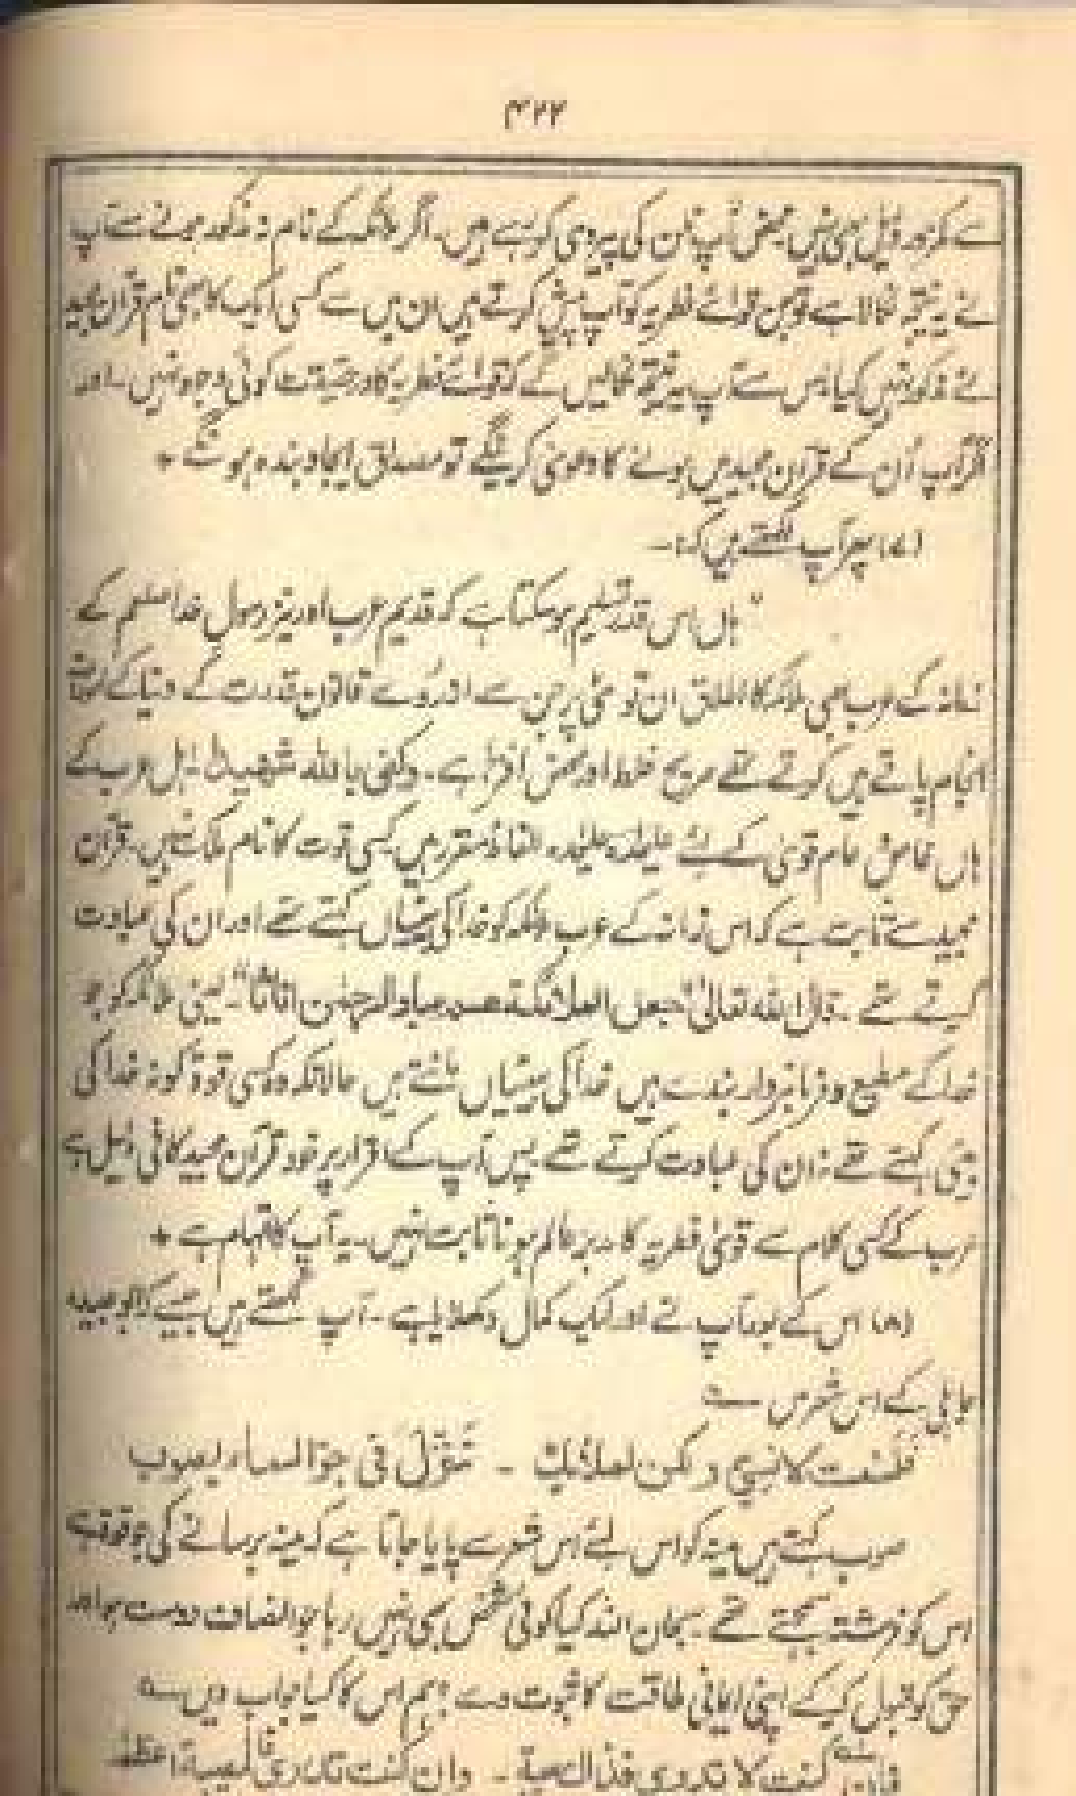 ۴۲۲
سے کمزور دلیل بھی نہیں محض آپ ظن کی پیروی کر رہے ہیں۔ اگر ملائکہ کے نام نہ مذکور ہونے سے آپ
نے یہ نتیجہ نکالا ہے تو جن قوائے فطریہ کو آپ پیش کرتے ہیں ان میں سے کسی ایک کا بھی نام قرآن مجید
نے ذکر نہیں کیا اس سے آپ یہ نتیجہ نکالیں گے کہ قوائے فطریہ کا درحقیقت کوئی وجود نہیں۔ اور
اگر آپ اُن کے قرآن مجید میں ہونے کا دعویٰ کرینگے تو مصداق ایجاد بندہ ہو گی +
(۷) پھر آپ لکھتے ہیں کہ:۔
"ہاں اس قدر تسلیم ہو سکتا ہے کہ قدیم عرب اور نیز رسول خدا صلعم کے
زمانہ کے عرب بھی ملائکہ کا اطلاق ان قویٰ پر جن سے از روے قانون قدرت کے دنیا کے امورات
انجام پاتے ہیں کرتے تھے صریح غلط اور محض افترا ہے۔ وکفیٰ باللہ شھیدا۔ اہل عرب کے
ہاں خاص عام قویٰ کے لئے علیحدہ علیحدہ الفاظ مقرر ہیں کسی قوت کا نام ملک نہیں۔ قرآن
مجید سے ثابت ہے کہ اس زمانہ کے عرب ملائکہ کو خدا کی بیٹیاں کہتے تھے اور ان کی عبادت
کرتے تھے۔ قال اللہ تعالیٰ "جعل الملائکۃ ھم عباد الرحمٰن اناثا"۔ یعنی ملائکہ کو جو
خدا کے مطیع و فرمانبردار بندے ہیں خدا کی بیٹیاں مانتے ہیں حالانکہ وہ کسی قوۃ کو نہ خدا کی
بیٹی کہتے تھے نہ ان کی عبادت کرتے تھے پس آپ کے اقرار پر خود قرآن مجید کافی دلیل ہے
عرب کے کسی کلام سے قویٰ فطریہ کا مدبر عالم ہونا ثابت نہیں۔ یہ آپ کا اتہام ہے +
(۸) اس کے بعد آپ نے اور ایک کمال دکھلایا ہے۔ آپ لکھتے ہیں جیسے کہ ابو عبیدہ
جاہلی کے اس شعر میں ہے
فلست لانسی ولکن لملاک ۔ تنزل فی جو السماء یصوب
صوب کہتے ہیں مینہ کو اس لئے اس شعر سے پایا جاتا ہے کہ مینہ برسانے کی جو قوۃ ہے
اس کو فرشتہ سمجھتے تھے۔ سبحان اللہ کیا کوئی شخص بھی نہیں رہا جو انصاف دوست ہو اور
حق کو قبول کر کے اپنی ایمانی طاقت کا ثبوت دے؛ ہم اس کا کیا جواب دیں
فان کنت لا تدری فذاک مصیبۃ ۔ وان کنت تدری فالمصیبۃ اعظم